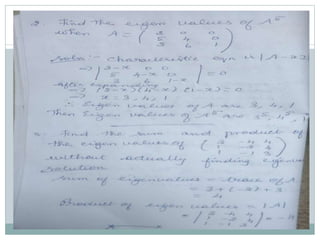 2. Find the eigen values of A⁵
when A = ( 3 0 0
5 4 0
3 6 1 )
Soln:- Characteristic eqn is |A-
⇒ | 3-x 0 0
5 4-x 0
1-x | = 0
After expanding
⇒ (3-x) (4-x) (1-x) = 0
⇒ x = 3, 4, 1
∴ Eigen values of A are 3, 4, 1
Then Eigen values of A⁵ are 3⁵, 4⁵,
Find the sum and product of
the eigen values of ( 3 -4 4
1 -2 4
1 -1 3 )
without actually finding eigenva
Solution
Sum of eigenvalues = trace of A
= 3 + (-2) + 3
= 4
Product of eigen values = |A|
= | 3 -4 4
1 -2 4
1 -1 3 | =